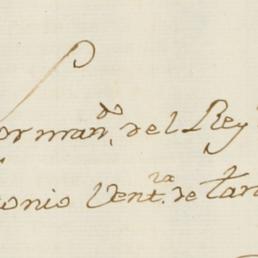 orman^do. del Rey
onio Vent^ra. de tara